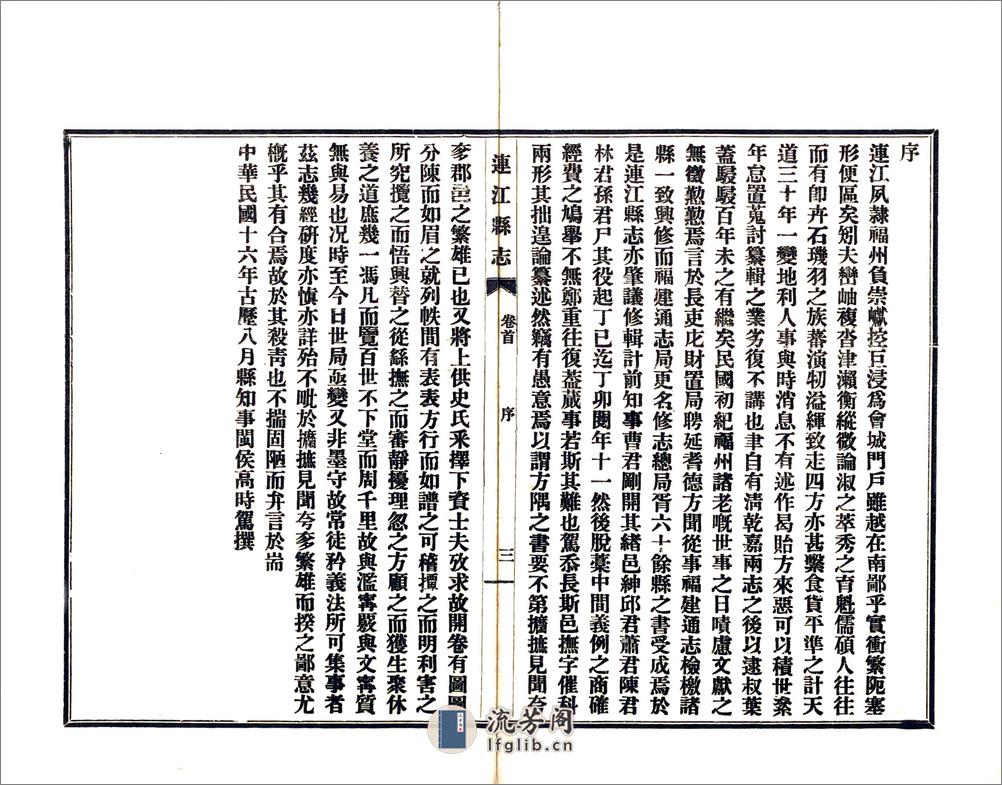 序
連江夙隸福州負崇巘控巨浸爲會城門戶雖越在南鄙乎實衝繁阨塞
形便區矣矧夫巒岫複沓津瀨衡縱微論淑之萃秀之育魁儒碩人往往
而有卽卉石璣羽之族蕃演牣溢緷致走四方亦甚繫食貨平準之計天
道三十年一變地利人事與時消息不有述作曷貽方來惡可以積世絫
年怠置蒐討纂輯之業劣復不講也聿自有淸乾嘉兩志之後以逮叔葉
蓋駸駸百年未之有繼矣民國初紀福州諸老嘅世事之日嘖慮文獻之
無徵懃懃焉言於長吏庀財置局聘延耆德方聞從事福建通志檢檄諸
縣一致興修而福建通志局更名修志總局胥六十餘縣之書受成焉於
是連江縣志亦肇議修輯計前知事曹君剛開其緒邑紳邱君蕭君陳君
林君孫君尸其役起丁巳迄丁卯閱年十一然後脫稾中間義例之商確
經費之鳩舉不無鄭重往復葢蕆事若斯其難也駕忝長斯邑撫字催科
兩形其拙遑論纂述然竊有愚意焉以謂方隅之書要不第擔摭見聞夸
連江縣志
卷首
序
三
奓郡邑之繁雄已也又將上供史氏采擇下資士夫攷求故開卷有圖圖
分陳而如眉之就列帙間有表表方行而如譜之可稽撢之而明利害之
所究攬之而悟興替之從繇撫之而審靜擾理忽之方顧之而獲生聚休
養之道庶幾一馮几而覽百世不下堂而周千里故與濫寗覈與文寗質
無與易也况時至今日世局亟變又非墨守故常徒矜義法所可集事者
茲志幾經硏度亦愼亦詳殆不呲於擔摭見聞夸奓繁雄而揆之鄙意尤
槪乎其有合焉故於其殺靑也不揣固陋而弁言於耑
中華民國十六年古歷八月縣知事閩侯高時駕撰
流芳阁
lfglib.cn